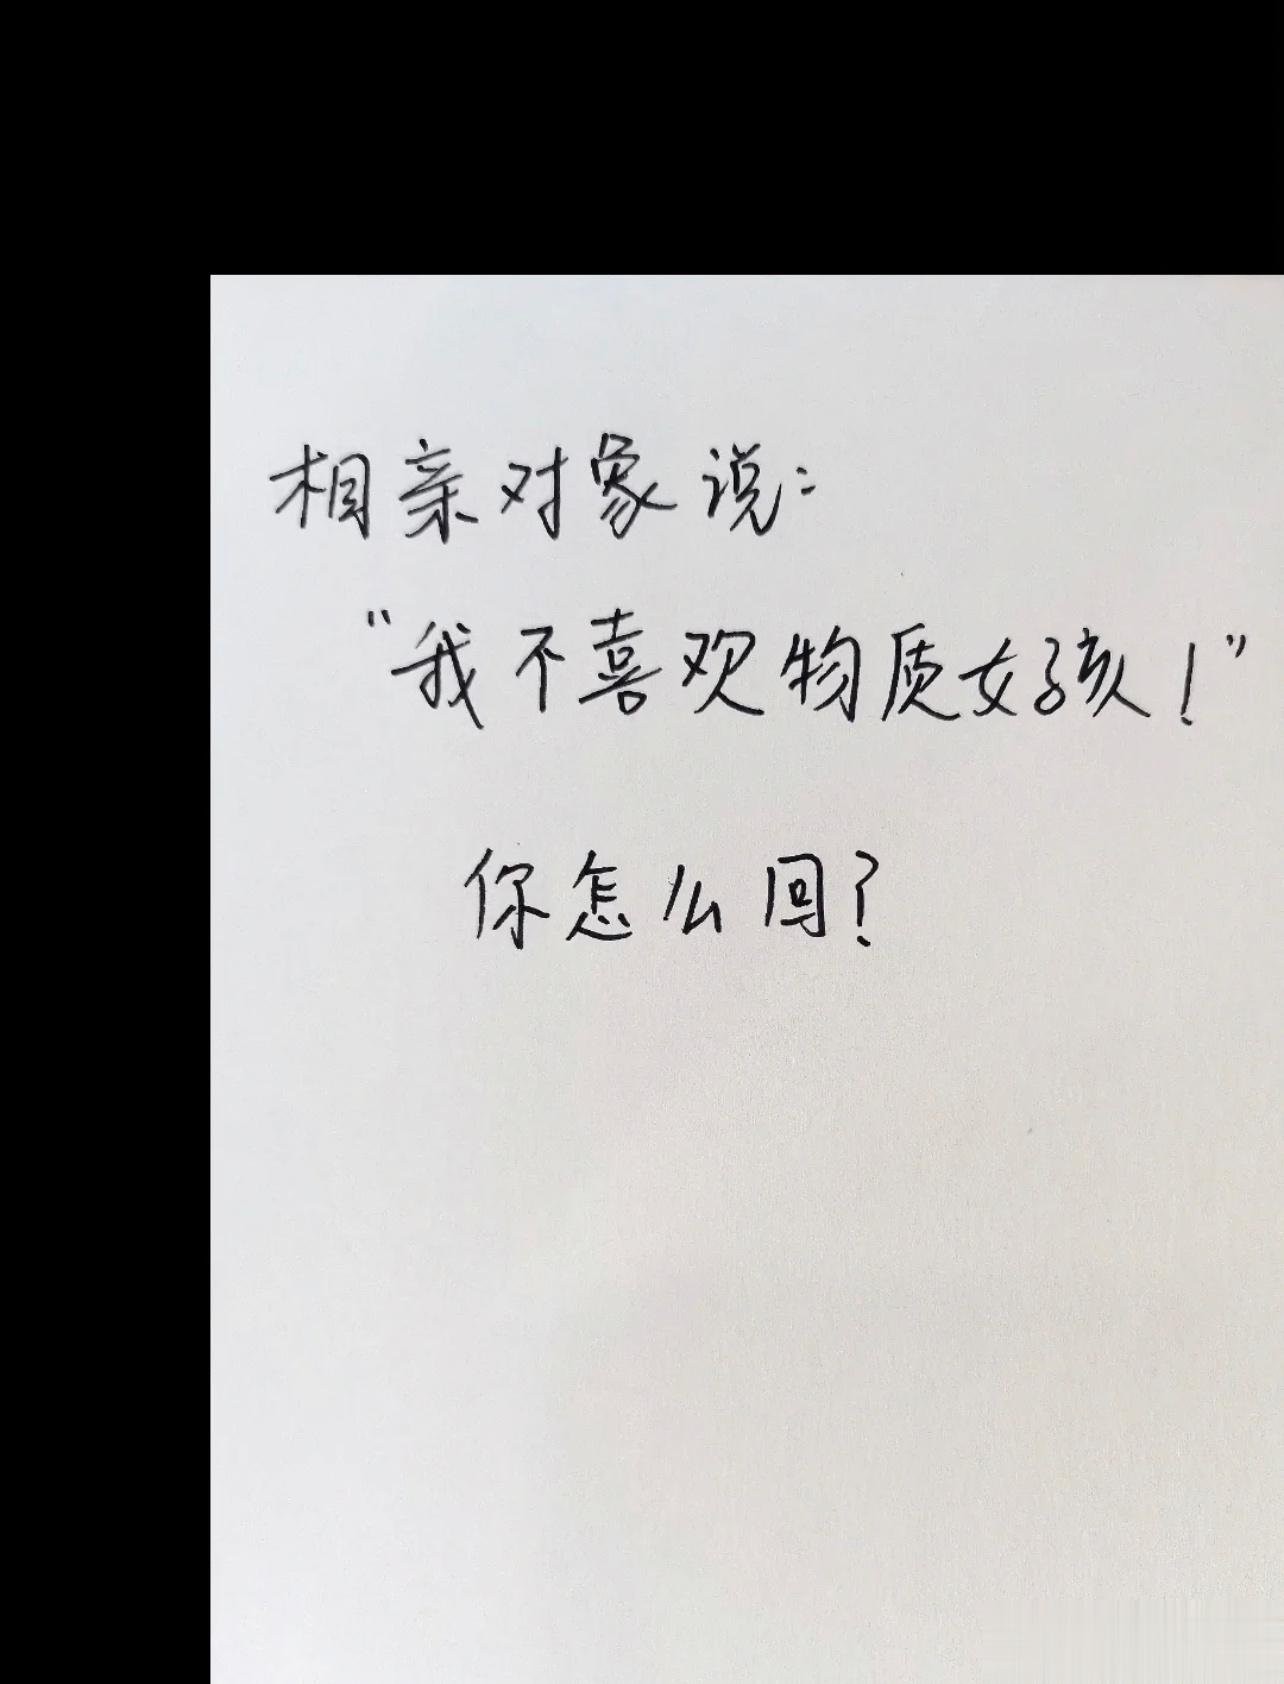 相亲对象说:
"我不喜欢物质女孩!"
你怎么回?